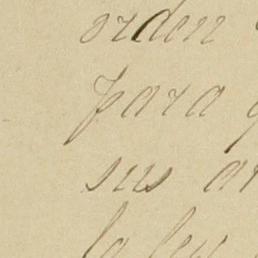 orden
para
sus
la ley